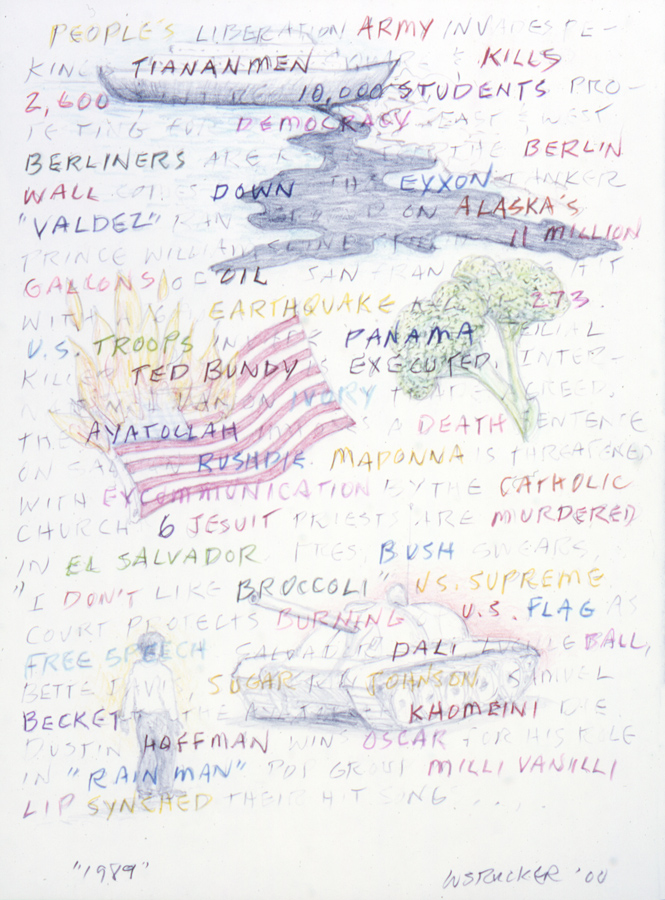 PEOPLE'S LIBERATION ARMY INVADES PE-
KING TIANANMEN & KILLS
2,600 10,000 STUDENTS PRO-
TESTING FOR DEMOCRACY EAST & WEST
BERLINERS ARE THE BERLIN
WALL COMES DOWN THE EXXON TANKER
"VALDEZ" RAN ON ALASKA'S
PRINCE WILLIAM 11 MILLION
GALLONS OF OIL SAN FRAN HIT
WITH EARTHQUAKE 273.
U.S. TROOPS PANAMA SERIAL
KILLER TED BUNDY IS EXECUTED. INTER-
BAN ON IVORY AGREED.
THE AYATOLLAH A DEATH SENTENCE
ON RUSHDIE. MADONNA IS THREATENED
WITH EXCOMMUNICATION BY THE CATHOLIC
CHURCH 6 JESUIT PRIESTS ARE MURDERED
IN EL SALVADOR. PRES. BUSH SWEARS,
"I DON'T LIKE BROCCOLI" U.S. SUPREME
COURT PROTECTS BURNING U.S. FLAG AS
FREE SPEECH SALVADOR DALI, LUCILLE BALL,
BETTE DAVIS, SUGAR JOHNSON SAMUEL
BECKETT THE KHOMEINI DIE.
DUSTIN HOFFMAN WINS OSCAR FOR HIS ROLE
IN "RAIN MAN" POP GROUP MILLI VANILLI
LIP SYNCHED THEIR HIT SONG....
"1989" WSTRUCKER '00